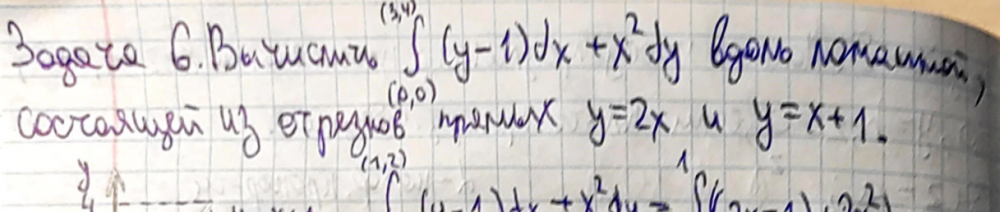 Задача 6. Вычислить ∫_{(0,0)}^{(3,4)} (y-1)dx + x²dy вдоль ломанной,
состоящей из отрезков прямых y=2x и y=x+1.
y (1,2) ∫ (y-1)dx + x²dy = ¹∫((2x-1)